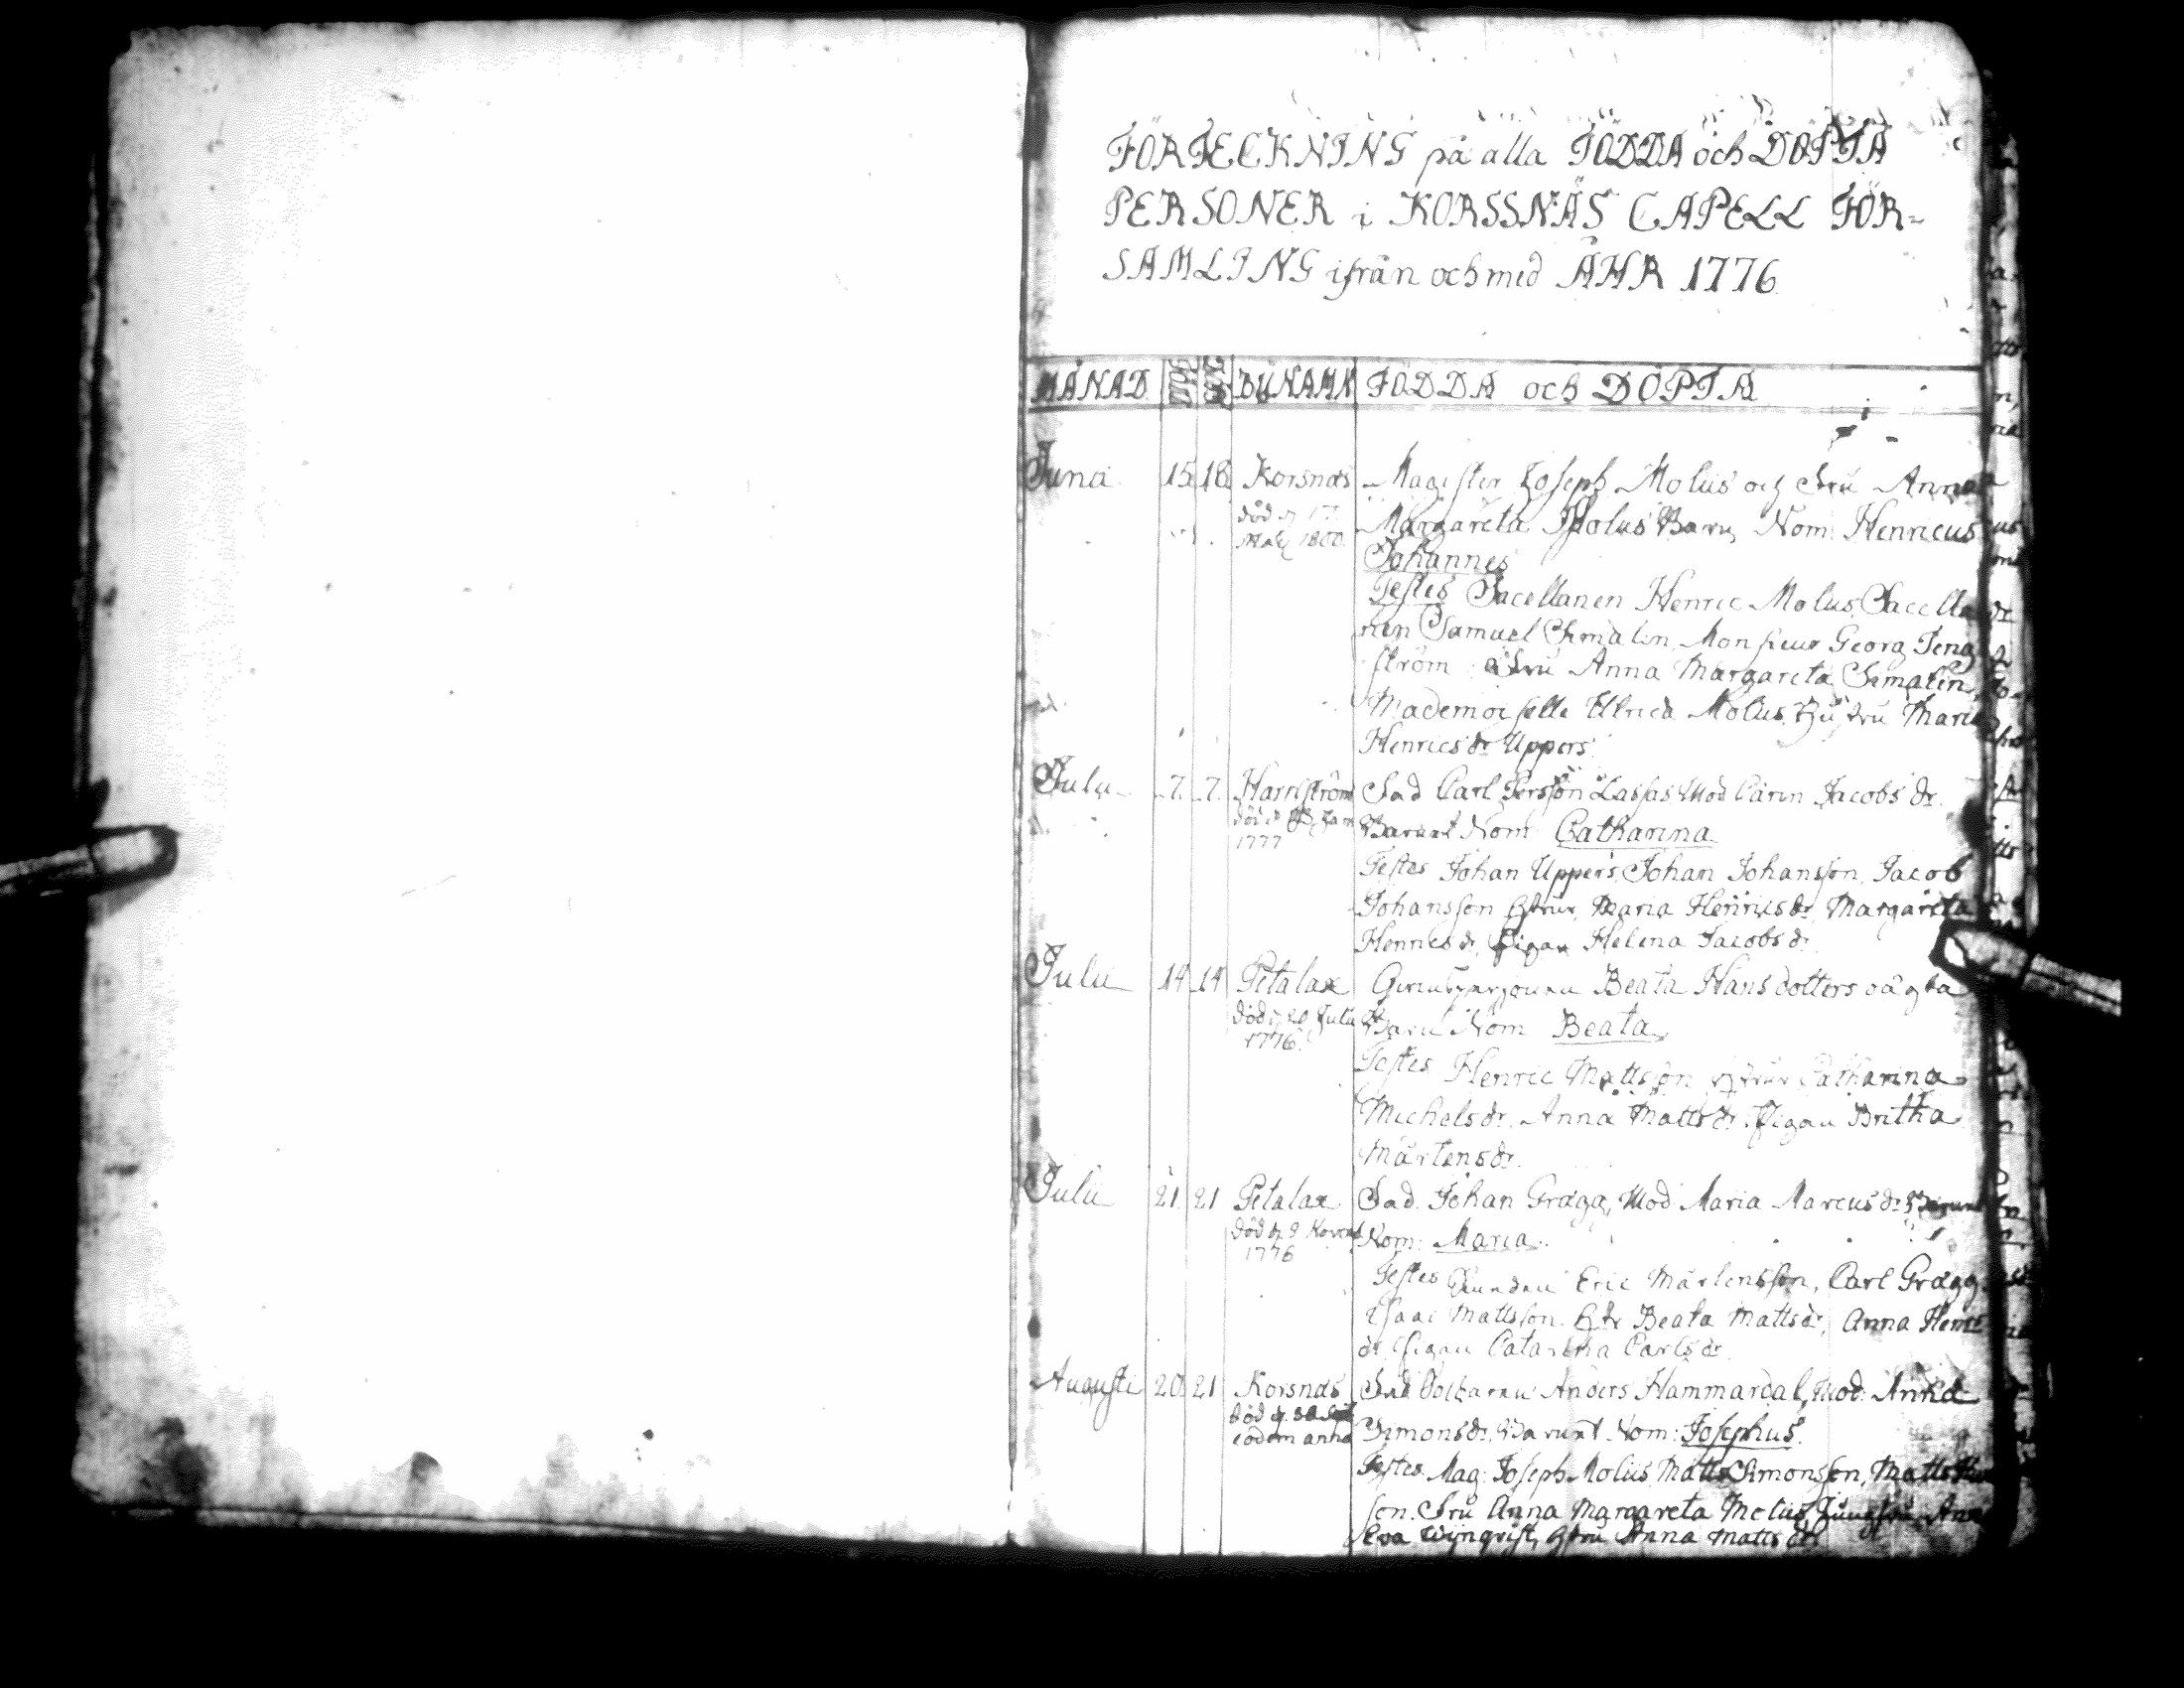 FÖRTECKNING på alla FÖDDA och DÖPTA
PERSONER i KORSSNÄS CAPELL FÖR=
SAMLING ifrån och med ÅHR 1776
MÅNAD BŸNAMN FÖDDA och DÖPTA
Juni 15 18 Korsnäs Magister Joseph Molius och Fru Anna
död d. 17 Margareta Molius Barn, Nom: Henricus
1800. Johannes
Testes Sacellanen Henric Molius, Sacella
nen Samuel Simalin, Monsieur Georg Teng
ström Fru Anna Margareta Simalin,
Mademoiselle Ulrica Molius, Hustru Maria
Henricsdr Uppers
Julii 7. 7. Harrström Fad Carl Persson Lassas Mod Carin Jacobsdr.
död d. Jan Barnet Nom Catharina
1777
Testes Johan Uppers, Johan Johansson, Jacob
Johansson Hstrur Maria Henricsdr Margareta
Henricsdr, Pigan Helena Jacobsdr
Julii 14 14 Petalax Beata Hansdotters oägta
död d. 20 Julii Barn Nom Beata
1776.
Testes Henric Mattsson Hstrur Catharina
Michelsdr. Anna Mattsdr. Pigan Britha
Mårtensdr.
Julii 21. 21 Petalax Fad. Johan Grägg, Mod Maria Marcusdr Barnet
död d. 9 Novemb Nom: Maria.
1776
Testes Bonden Eric Mårtensson, Carl Grägg
Isaac Mattsson. Hstr Beata Mattsdr, Anna Henrics
dr, Pigan Catarina Carlsdr
Augusti 20 21 Korsnäs Fad Anders Hammardal, Mod: Anna
död d. Simonsdr. Barnet Nom: Josephus.
eodem anno
Testes Mag: Joseph Molius, Matts Simonsson, Matts
son. Fru Anna Margareta Molius, Jungfru Anna
Eva Wijnqvist, Hstru Anna Mattsdr